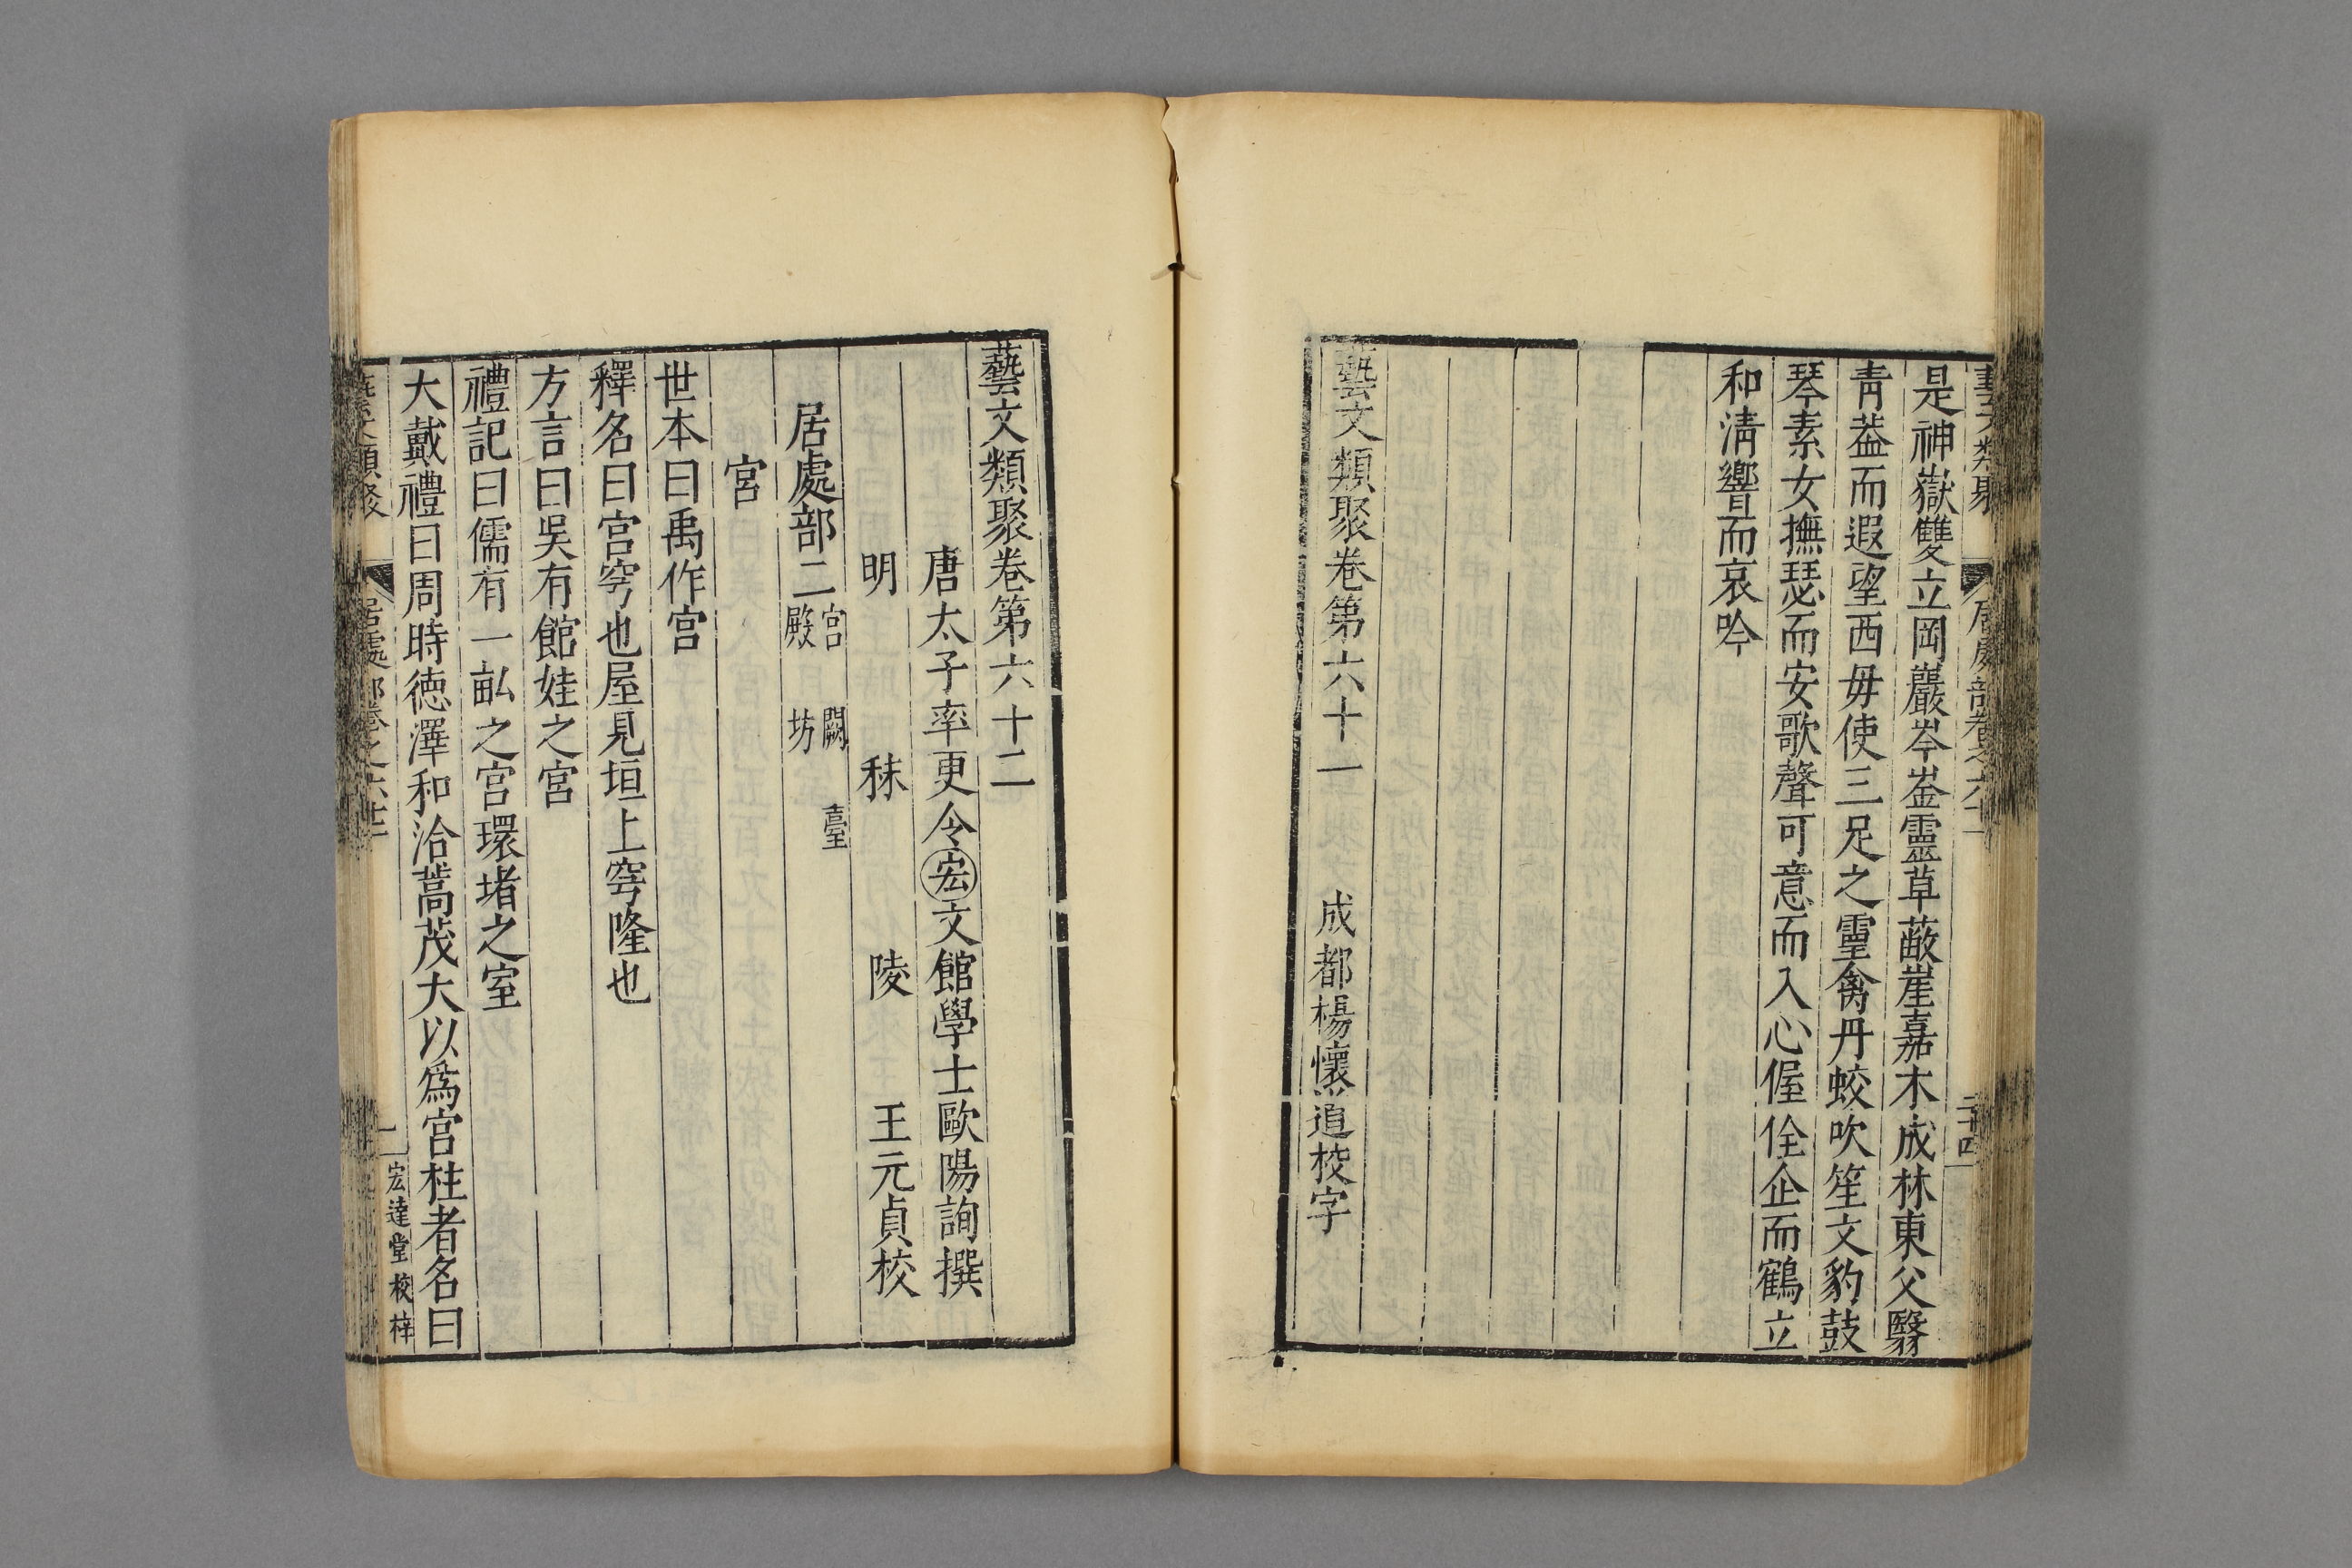 是神嶽雙立岡巖岑崟靈草蔽崖嘉木成林東父翳
青葢而遐望西毋使三足之靈禽丹蛟吹笙文豹鼓
琴素女撫瑟而安歌聲可意而入心偓佺企而鶴立
和清響而哀吟
藝文類聚卷第六十一　成都楊懷道校字
藝文類聚卷第六十二
唐太子率更令宏文館學士歐陽詢撰
明　秣　陵　王元貞校
居處部二　宮　闕　臺　殿　坊
宮
世本曰禹作宮
釋名曰宮穹也屋見垣上穹隆也
方言曰吳有館娃之宮
禮記曰儒有一畝之宮環堵之室
大戴禮曰周時德澤和洽蒿茂大以爲宮柱者名曰
宏達堂校梓